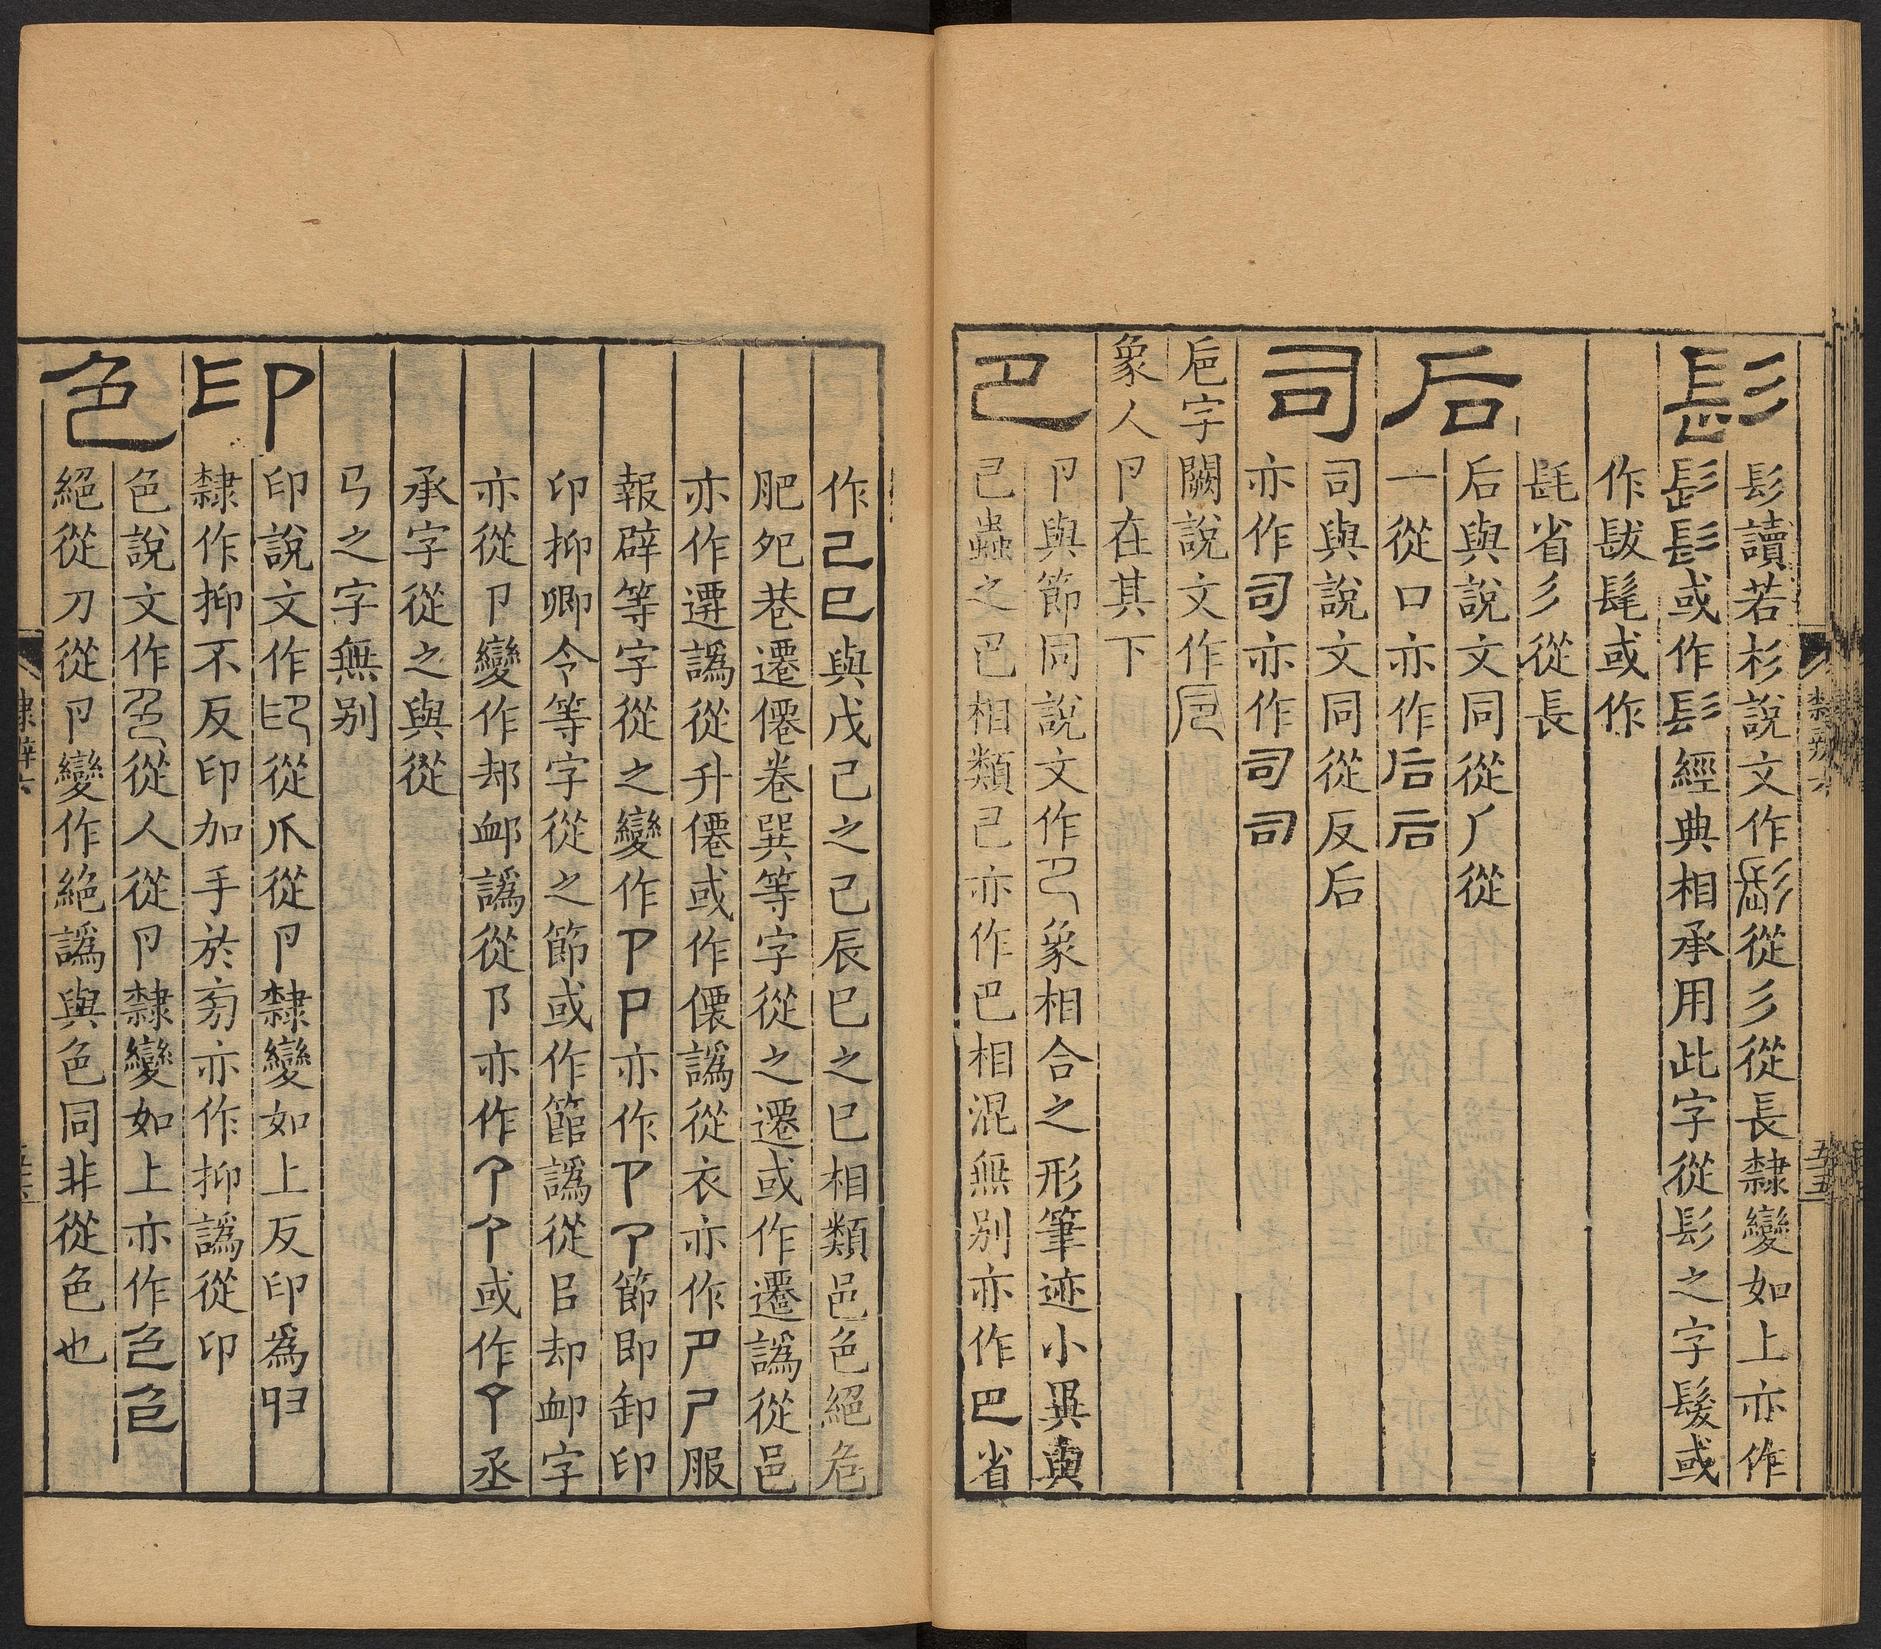 髟
髟讀若杉說文作髟從彡從長隸變如上亦作
髟髟或作髟經典相承用此字從髟之字髮或
作髮髦或作
髦省彡從長
后
后與說文同從𠂆從
一從口亦作后后
司
司與說文同從反后
亦作司亦作司司
巵字闕說文作巵
象人卪在其下
㔾
卪與節同說文作㔾象相合之形筆迹小異與
己蟲之巴相類己亦作巴相混無別亦作巴省
作己巳與戊己之己辰巳之巳相類邑色絕危
肥夗巷遷僊卷巽等字從之遷或作遷譌從邑
亦作遷譌從升僊或作僊譌從衣亦作尸尸服
報辟等字從之變作卩卩亦作卩卩節即卸印
卬抑卿令等字從之節或作節譌從㠯却卹字
亦從卪變作却卹譌從阝亦作卩卩或作丞
承字從之與從
㔾之字無別
印
印說文作印從爪從卪隸變如上反印為
隸作抑不反印加手於旁亦作抑譌從卬
色
色說文作色從人從卪隸變如上亦作色色
絕從刀從卪變作絶譌與色同非從色也
隸辨六
五十五
隸辨六